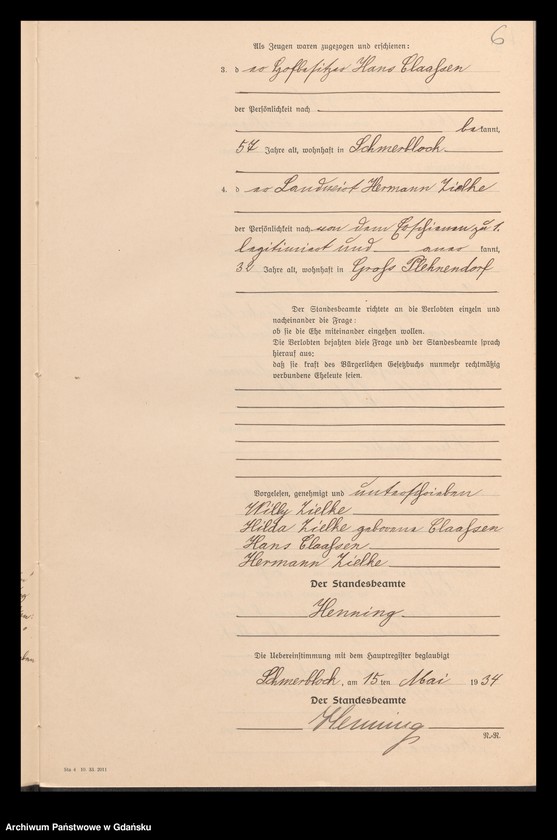 6
Als Zeugen waren zugezogen und erschienen:
3. der Hofbesitzer Hans Claaßen
der Persönlichkeit nach
bekannt,
57 Jahre alt, wohnhaft in Schmerblock
4. der Landwirt Hermann Zielke
der Persönlichkeit nach von dem Erschienen zu 1.
legitimiert und aner kannt,
32 Jahre alt, wohnhaft in Groß Plehnendorf
Der Standesbeamte richtete an die Verlobten einzeln und
nacheinander die Frage:
ob sie die Ehe miteinander eingehen wollen.
Die Verlobten bejahten diese Frage und der Standesbeamte sprach
hierauf aus:
daß sie kraft des Bürgerlichen Gesetzbuchs nunmehr rechtmäßig
verbundene Eheleute seien.
Vorgelesen, genehmigt und unterschrieben
Willy Zielke
Hilda Zielke geborene Claaßen
Hans Claaßen
Hermann Zielke
Der Standesbeamte
Henning
Die Uebereinstimmung mit dem Hauptregister beglaubigt
Schmerblock, am 15ten Mai 1934
Der Standesbeamte
Henning
N.-R.
Archiwum Państwowe w Gdańsku